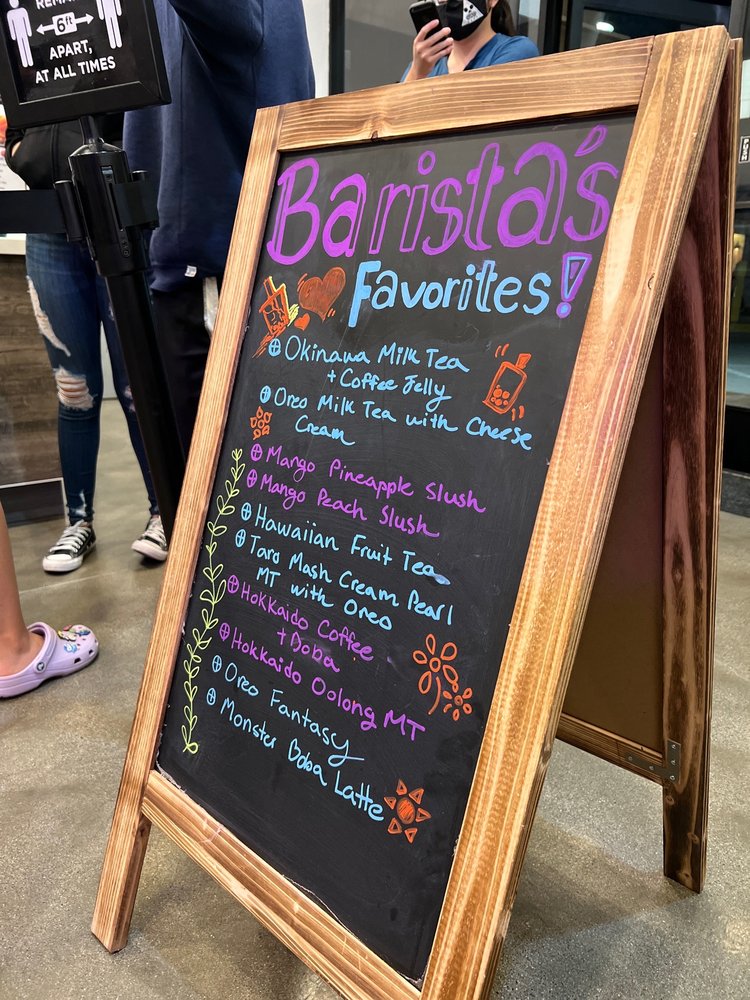 REMAIN
6ft
APART,
AT ALL TIMES
PUSH
Barista's
Favorites!
Okinawa Milk Tea
+ Coffee Jelly
Oreo Milk Tea with Cheese
Cream
Mango Pineapple Slush
Mango Peach Slush
Hawaiian Fruit Tea
Taro Mash Cream Pearl
MT with Oreo
Hokkaido Coffee
+ Boba
Hokkaido Oolong MT
Oreo Fantasy
Monster Boba Latte